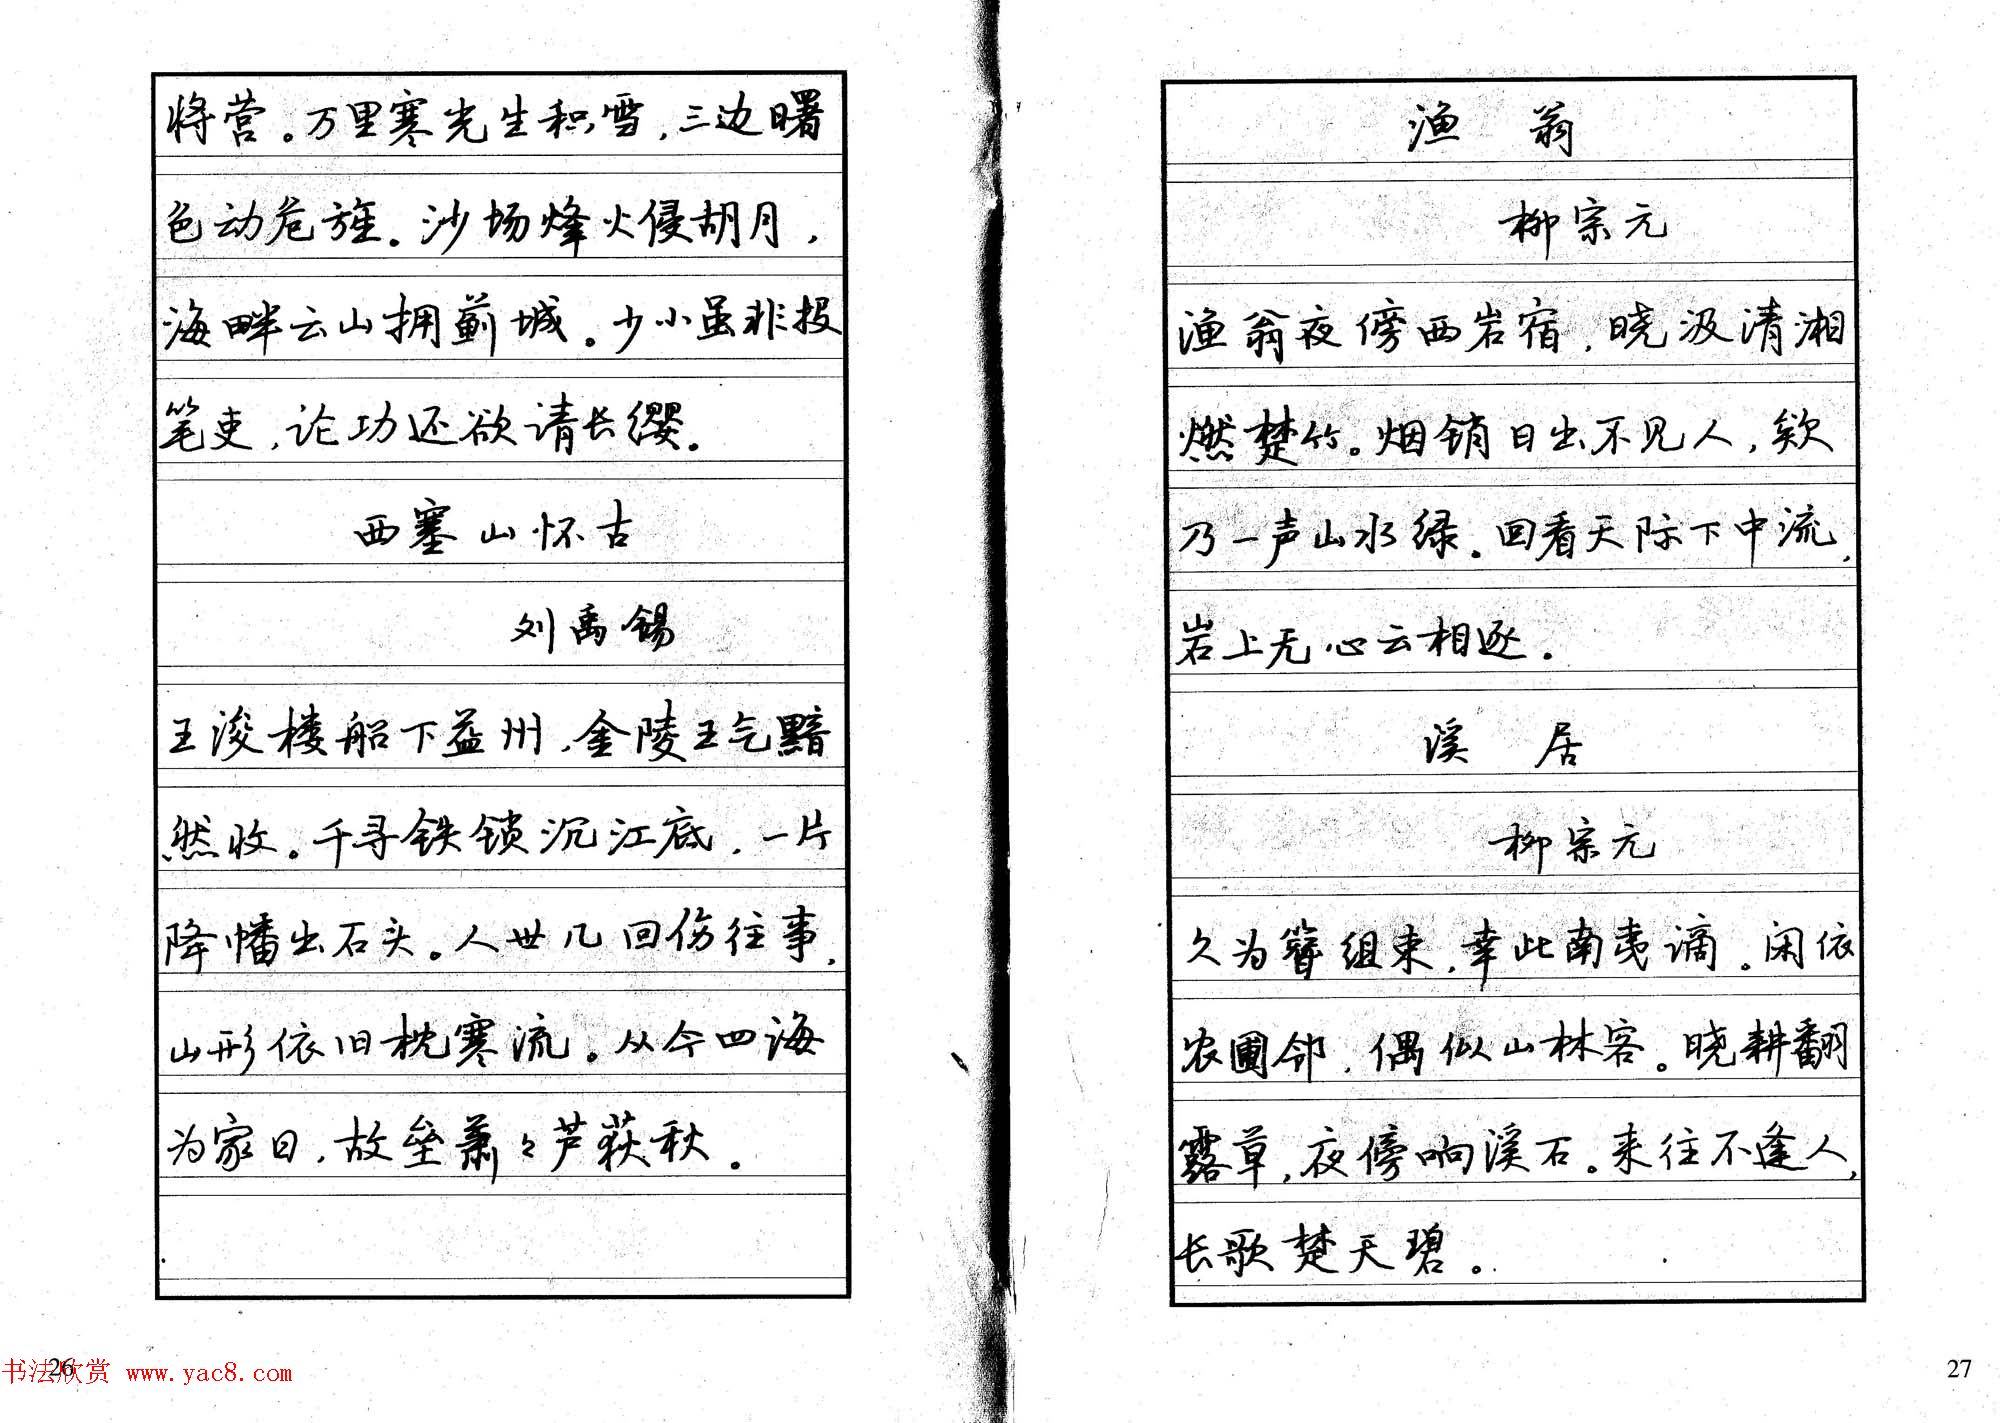 将营。万里寒光生积雪，三边曙
色动危旌。沙场烽火侵胡月，
海畔云山拥蓟城。少小虽非投
笔吏，论功还欲请长缨。
西塞山怀古
刘禹锡
王浚楼船下益州，金陵王气黯
然收。千寻铁锁沉江底，一片
降幡出石头。人世几回伤往事，
山形依旧枕寒流。从今四海
为家日，故垒萧々芦荻秋。
26
书法欣赏 www.yac8.com
渔 翁
柳宗元
渔翁夜傍西岩宿，晓汲清湘
燃楚竹。烟销日出不见人，欸
乃一声山水绿。回看天际下中流，
岩上无心云相逐。
溪 居
柳宗元
久为簪组束，幸此南夷谪。闲依
农圃邻，偶似山林客。晓耕翻
露草，夜傍响溪石。来往不逢人，
长歌楚天碧。
27